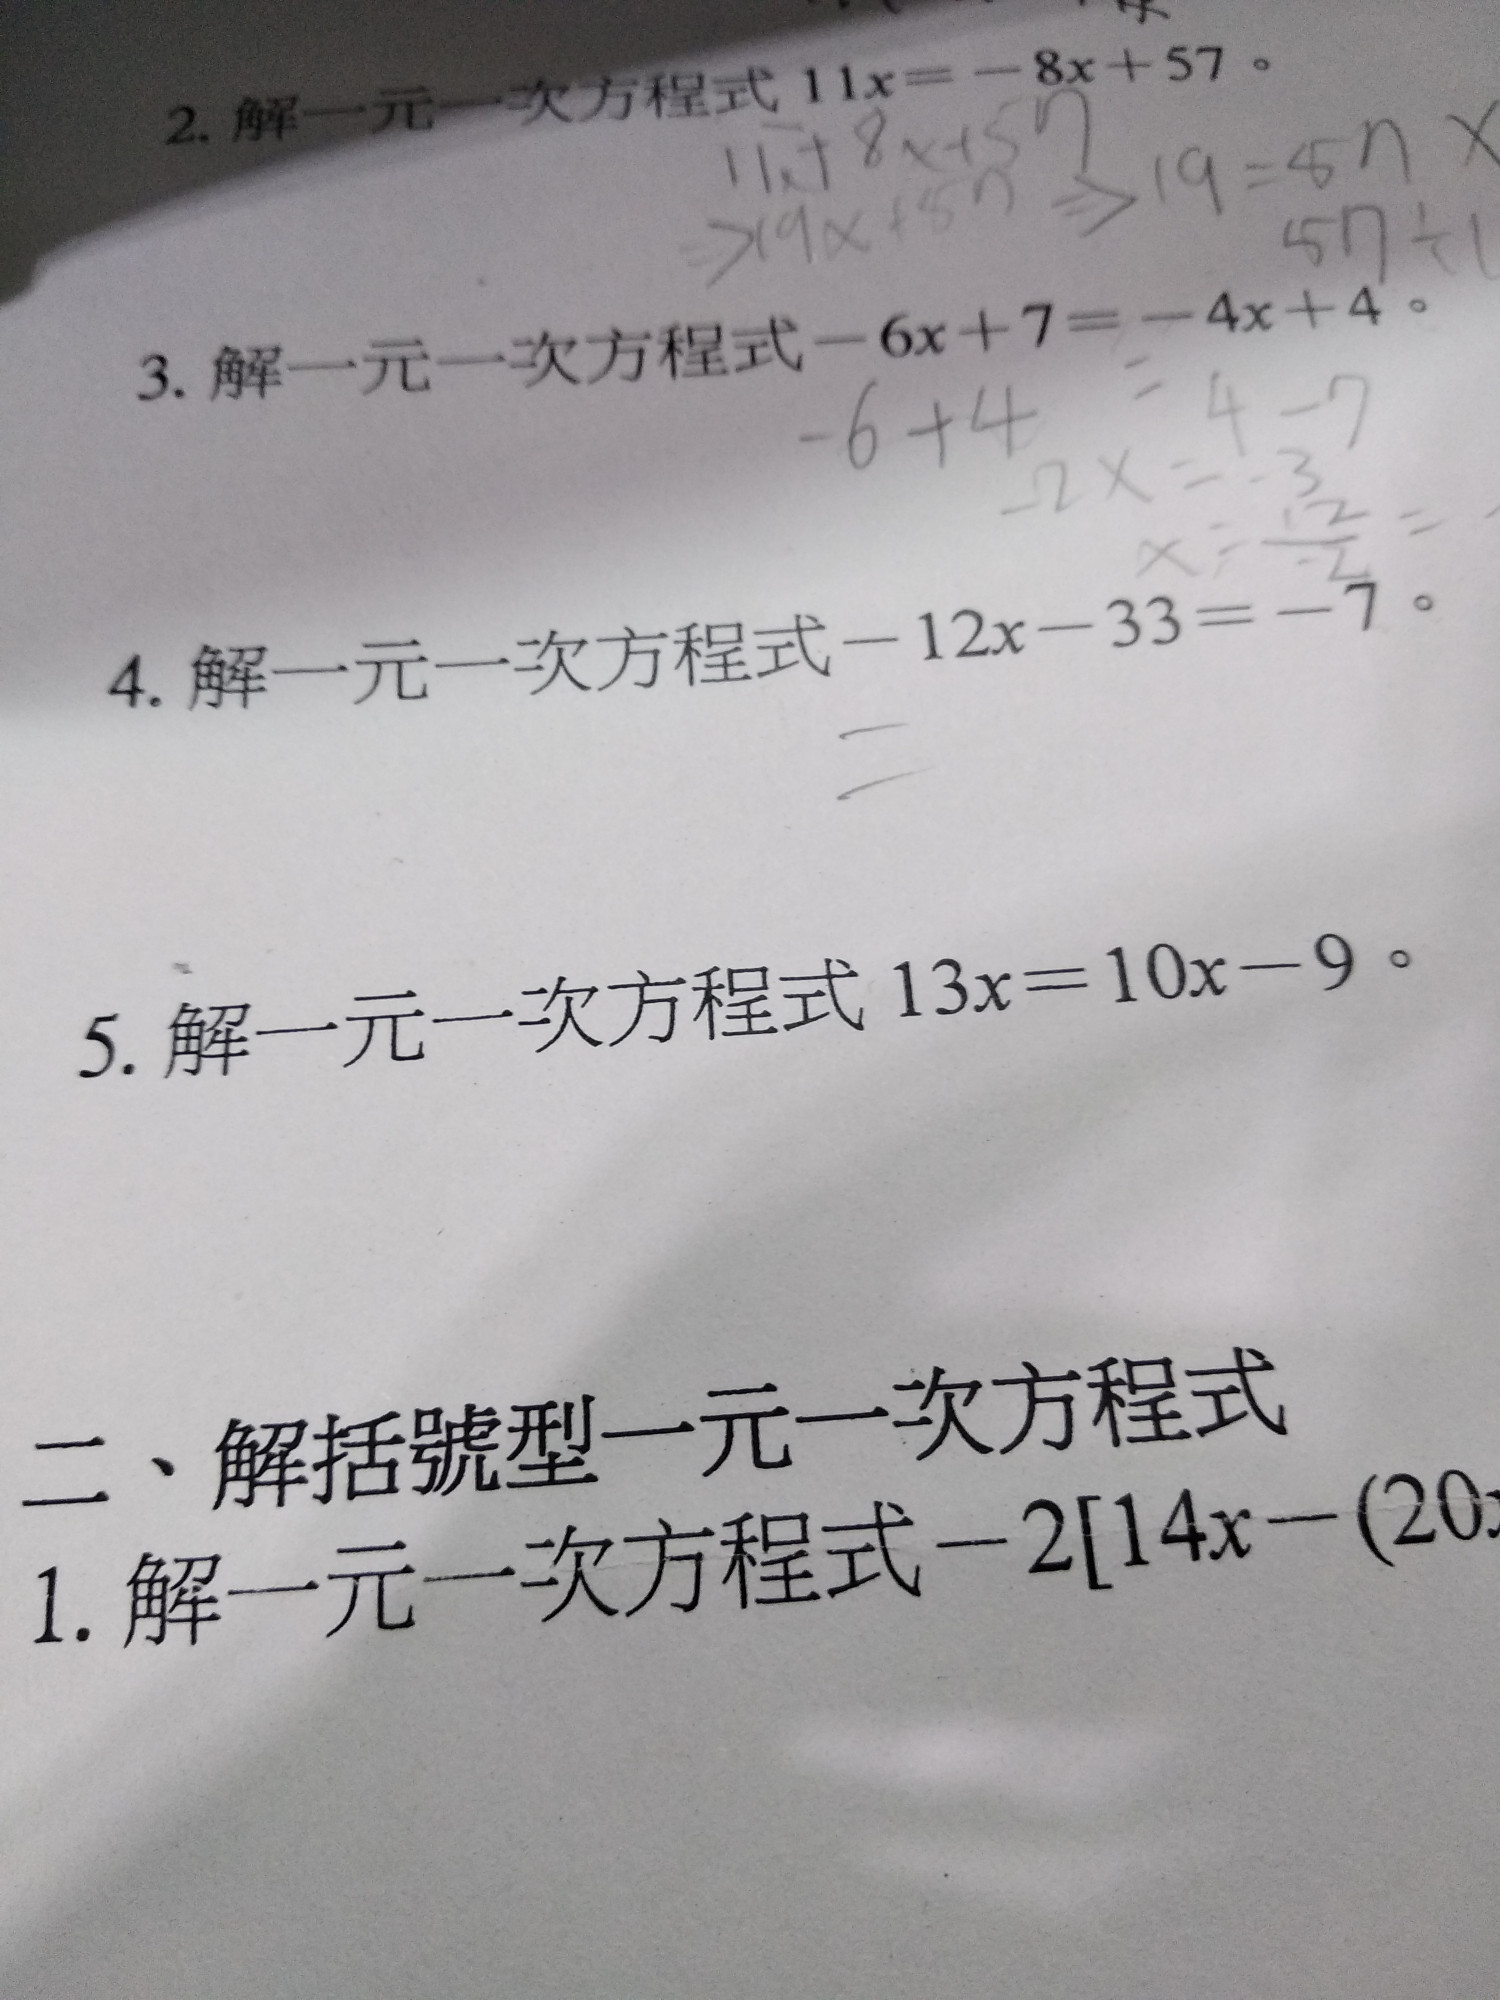 2. 解一元一次方程式 11x＝－8x＋57。
11x+8x+57
⇒19x+57 ⇒ 19=57 x
57÷1
3. 解一元一次方程式－6x＋7＝－4x＋4。
-6+4 = 4-7
-2x=-3
4. 解一元一次方程式－12x－33＝－7。
=
5. 解一元一次方程式 13x＝10x－9。
二、解括號型一元一次方程式
1. 解一元一次方程式－2[14x－(20x